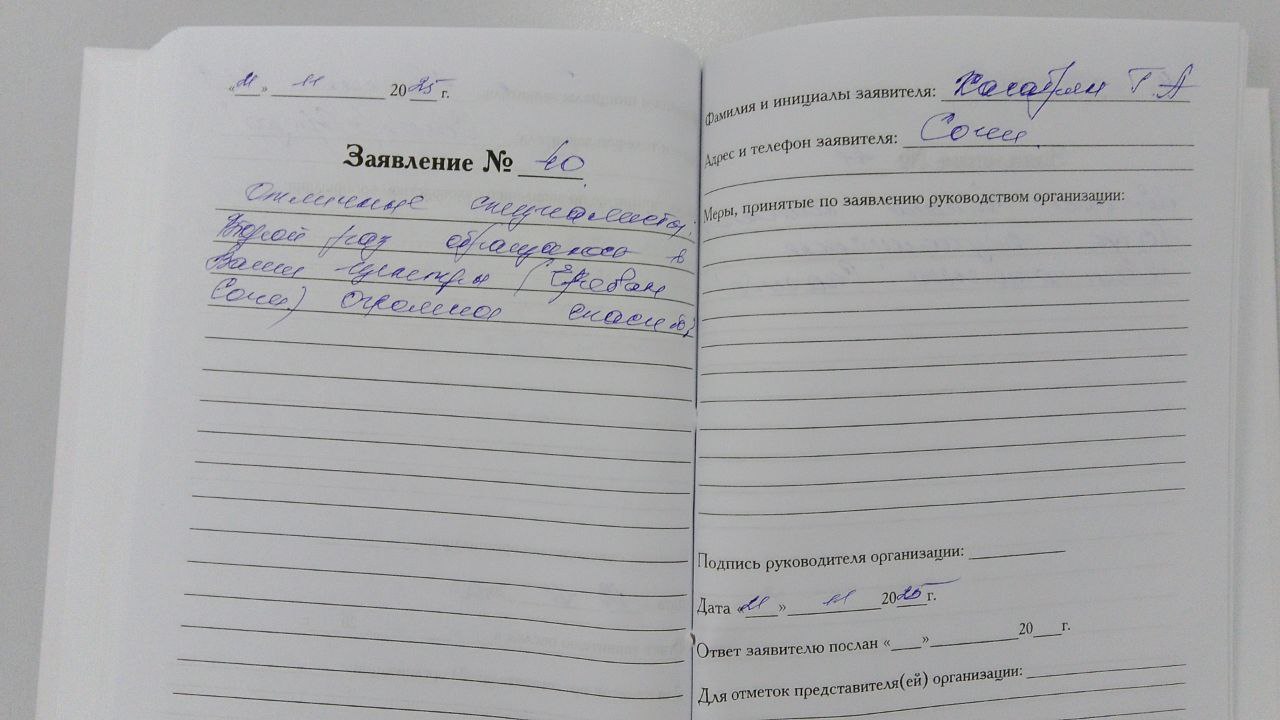 «21» 11 2025 г.
Заявление № 10
Отличные специалисты.
Второй раз обращаюсь в
Ваши центры (Ереван
Сочи) огромное спасибо,
Фамилия и инициалы заявителя: Г. А
Адрес и телефон заявителя: Сочи.
Меры, принятые по заявлению руководством организации:
Подпись руководителя организации:
Дата «21» 11 2025 г.
Ответ заявителю послан «__» ______ 20__ г.
Для отметок представителя(ей) организации: